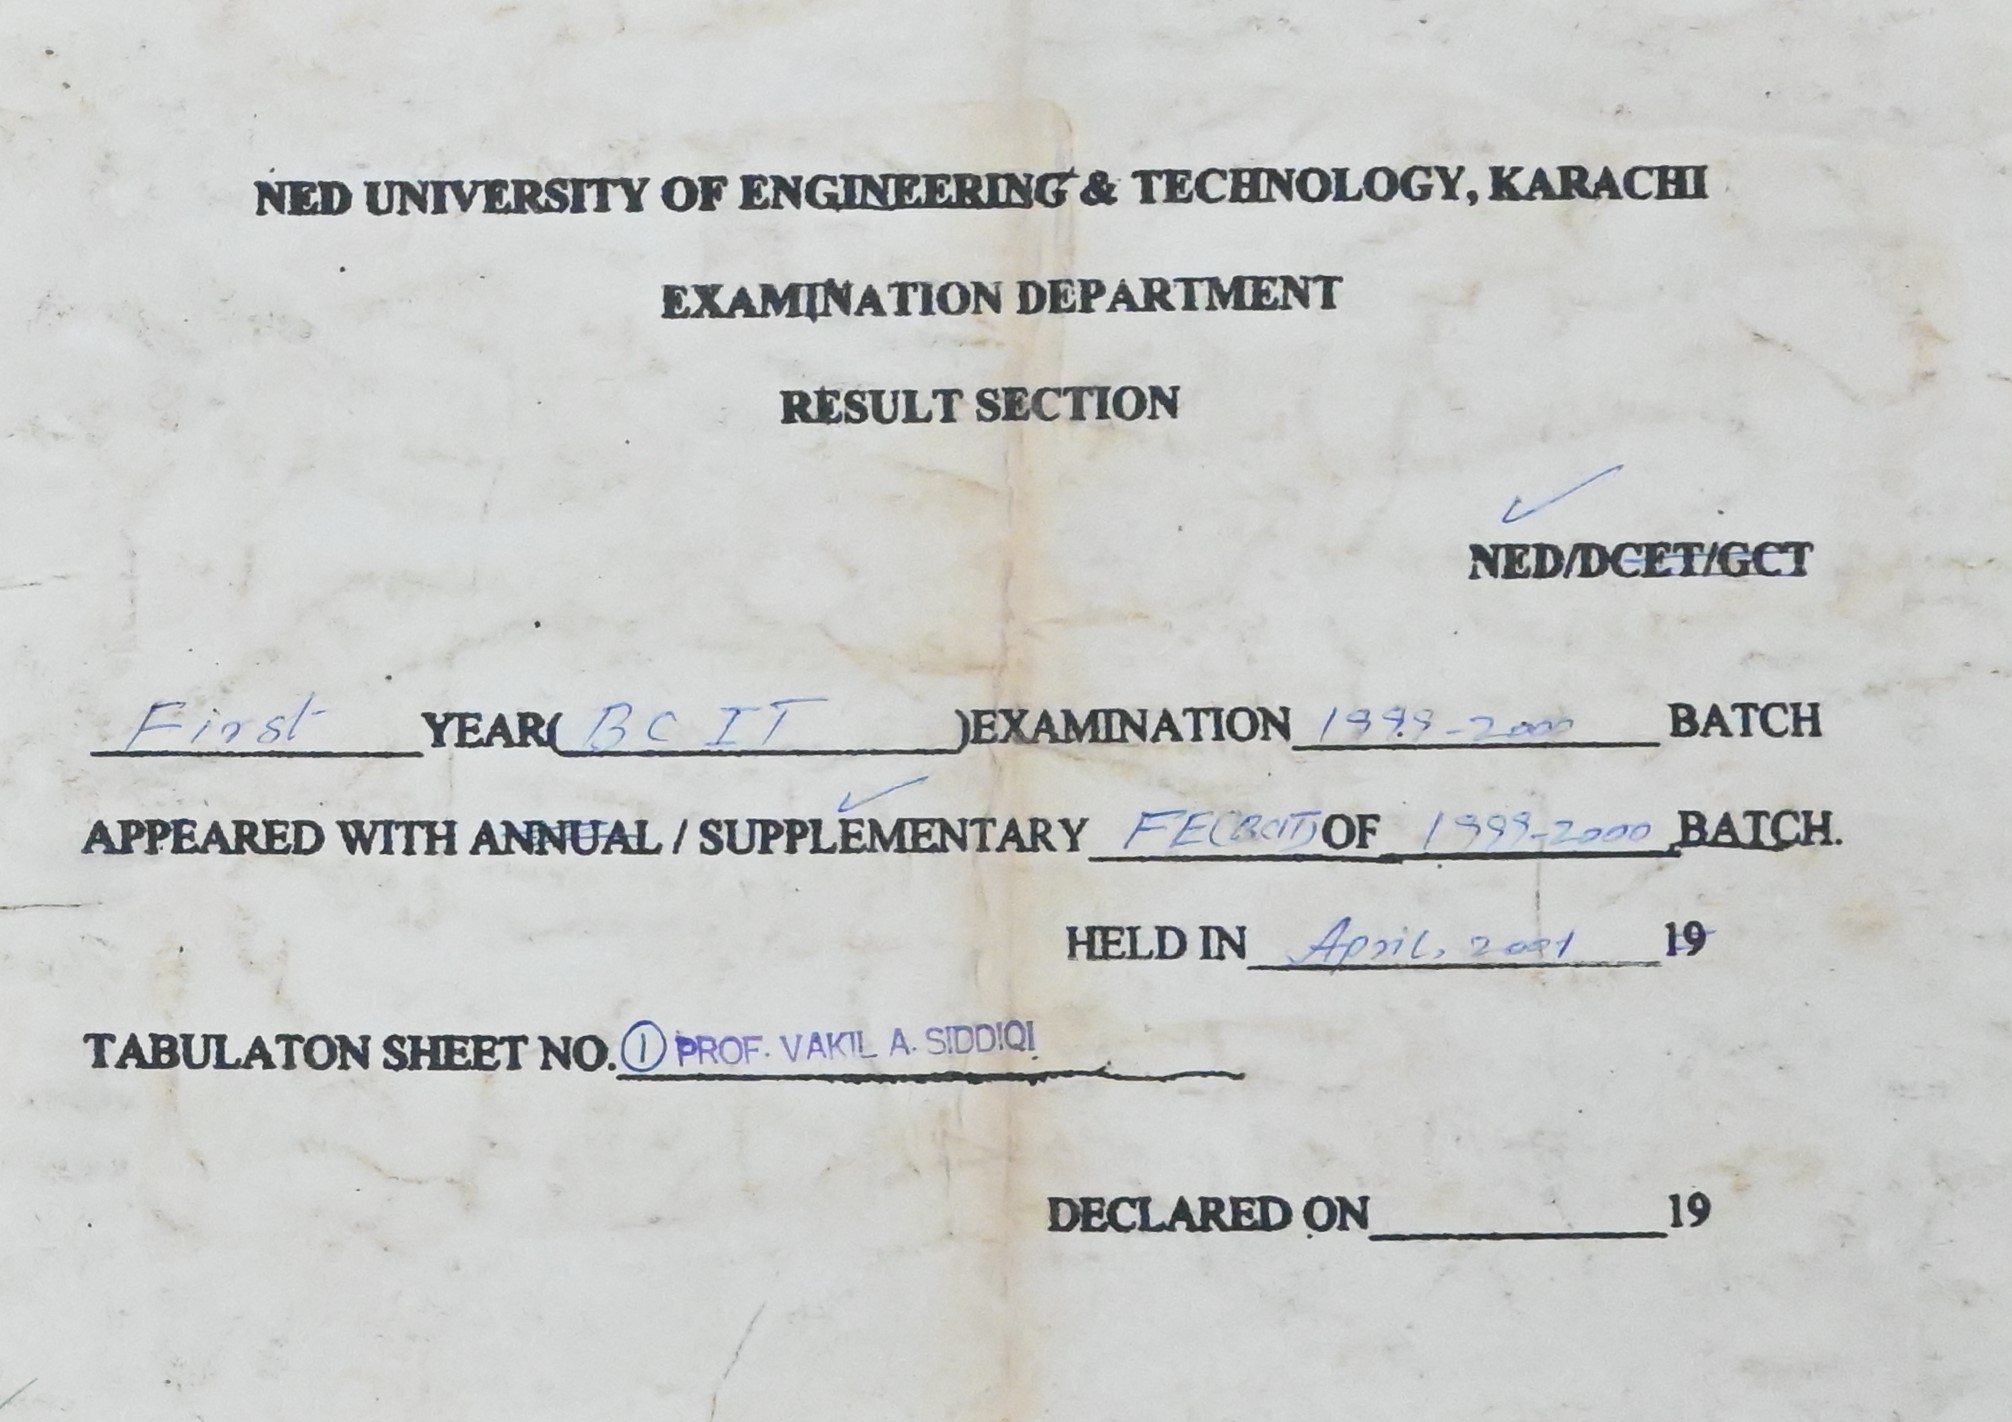 NED UNIVERSITY OF ENGINEERING & TECHNOLOGY, KARACHI
EXAMINATION DEPARTMENT
RESULT SECTION
NED/DCET/GCT
First YEAR( BC IT )EXAMINATION 1999-2000 BATCH
APPEARED WITH ANNUAL / SUPPLEMENTARY FE(BCIT) OF 1999-2000 BATCH.
HELD IN April, 2001 19
TABULATON SHEET NO. 1 PROF. VAKIL A. SIDDIQI
DECLARED ON 19